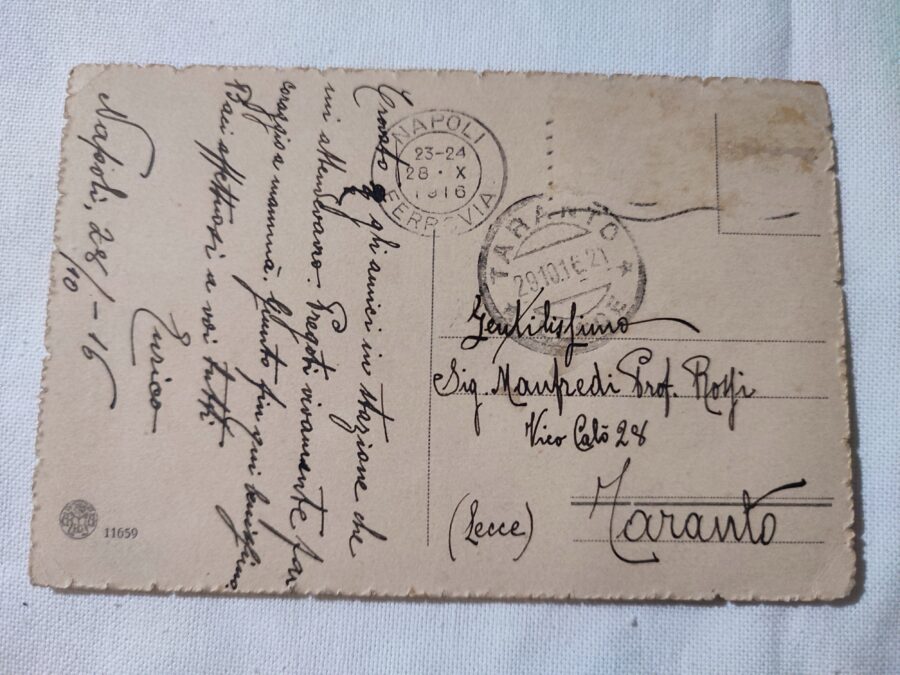 Trovato gli amici in stazione che
mi attendevano. Pregoti vivamente far
coraggio a mammà. Giunto fin qui benissimo
Baci affettuosi a voi tutti
Enrico
Napoli, 28/10-16
NAPOLI
23-24
28 · X
1916
FERROVIA
TARANTO
29.10.16.21
Gentilissimo
Sig. Manfredi Prof. Rossi
Vico Calò 28
(Lecce)
Taranto
11659